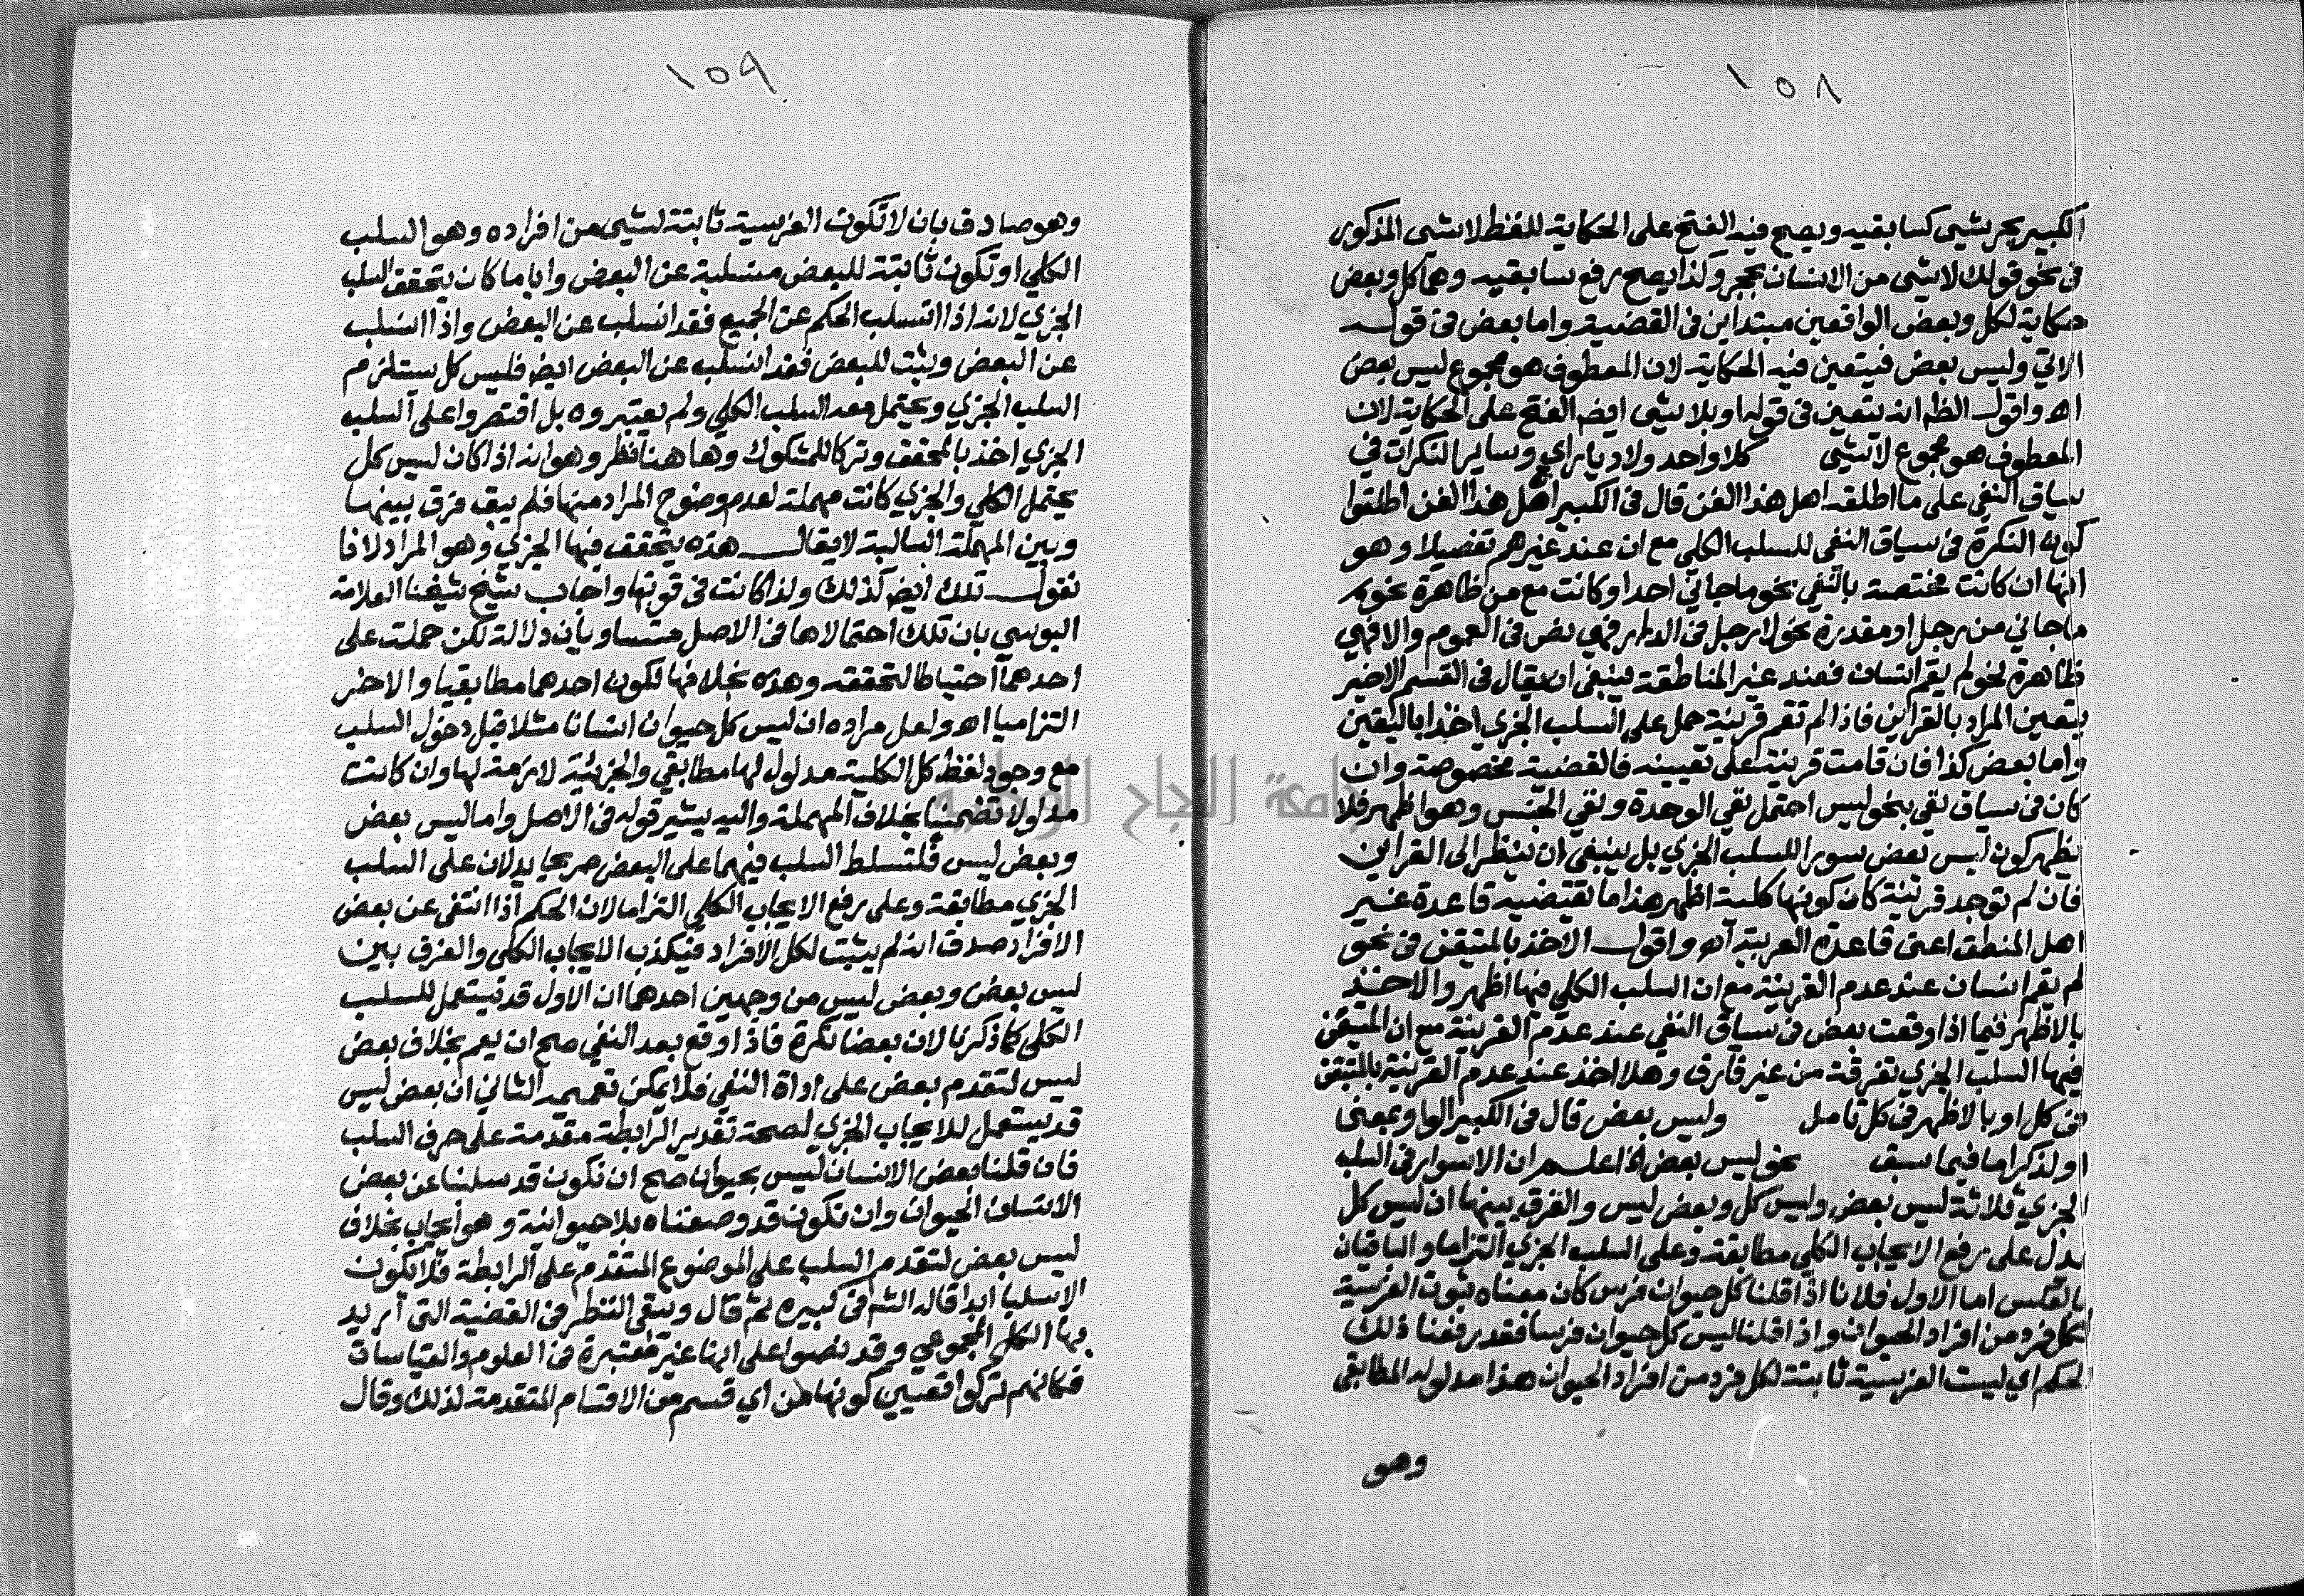 ١٥٨
الكبير بجر شيى كسابقيه ويصح فيه الفتح على الحكاية للفظ لا شى المذكور
فى نحو قولك لا شى من الانسان بحجر وكذا يصح رفع سابقيه وهما كل وبعض
حكاية لكل وبعض الواقعين مبتداين فى القضية واما بعض فى قولـــه
الاتي وليس بعض فيتعين فيه الحكاية لان المعطوف هو مجموع ليس بعض
اهـ واقول الظه انه يتعين فى قوله او بلا شيى ايضه الفتح على الحكاية لان
المعطوف هو مجموع لا شيى كلا واحد ولا ديار اي وساير النكرات في
سياق النفي على ما اطلقه اهل هذا الفن قال فى الكبير اهل هذا الفن اطلقوا
كون النكرة فى سياق النفى للسلب الكلي مع ان عند غيرهم تفصيلا وهو
انها ان كانت مختصة بالنفي نحو ما جاني احد او كانت مع من ظاهرة نحو
ما جاني من رجل او مقدرة نحو لا رجل فى الدار فهي نص فى العموم والا فهي
ظاهرة نحو لم يقم انسان فعند غير المناطقة ينبغى ان يقال فى القسم الاخير
يتعين المراد بالقراين فاذا لم تقم قرينة حمل على السلب الجزي اخذا باليقين
واما بعض كذا فان قامت قرينة على تعيينه فالقضية مخصوصة وان
كان فى سياق نفي بنحو ليس احتمل نفي الوحدة ونفي الجنس وهو اظهر فلا
يظهر كون ليس بعض سورا للسلب الجزي بل ينبغى ان ينظر الى القراين
فان لم توجد قرينة كان كونها كلية اظهر هذا ما تقتضيه قاعدة غير
اهل المنطق اعنى قاعدة العربية اهـ واقول الاخذ بالمتيقن فى نحو
لم يقم انسان عند عدم القرينة مع ان السلب الكلي فيها اظهر والاخذ
بالاظهر فيما اذا وقعت بعض فى سياق النفي عند عدم القرينة مع ان المتيقن
فيها السلب الجزي تفرقة من غير فارق وهلا اخذ عند عدم القرينة بالمتيقن
فى كل او بالاظهر فى كل تامل وليس بعض قال فى الكبير الواو بمعنى
او لذكر اما فيما سبق نحو ليس بعض اذا اعلم ان الاسوار فى السلب
الجزي ثلاثة ليس بعض وليس كل وبعض ليس والفرق بينها ان ليس كل
يدل على رفع الايجاب الكلي مطابقة وعلى السلب الجزي التزاما والباقيان
بالعكس اما الاول فلانا اذا قلنا كل حيوان فرس كان معناه ثبوت الفرسية
لكل فرد من افراد الحيوان واذا قلنا ليس كل حيوان فرسا فقد رفعنا ذلك
الحكم اي ليست الفرسية ثابتة لكل فرد من افراد الحيوان هذا مدلوله المطابقى
وهو
١٥٩
وهو صادق بان لا تكون الفرسية ثابتة لشيى من افراده وهو السلب
الكلي او تكون ثابتة للبعض منسلبة عن البعض وايا ما كان يتحقق السلب
الجزي لانه اذا انسلب الحكم عن الجميع فقد انسلب عن البعض واذا انسلب
عن البعض وثبت للبعض فقد انسلب عن البعض ايضه فليس كل يستلزم
السلب الجزي ويحتمل معه السلب الكلي ولم يعتبروه بل اقتصروا على السلب
الجزي اخذ بالمحقق وتركا للمشكوك وها هنا نظر وهو انه اذا كان ليس كل
يحتمل الكلي والجزي كانت مهملة لعدم وضوح المراد منها فلم يبق فرق بينها
وبين المهملة السالبة لا يقال هذه يتحقق فيها الجزي وهو المراد لانا
نقول تلك ايضه كذلك ولذا كانت فى قوتها واجاب شيخ شيخنا العلامة
اليوسي بان تلك احتمالاها فى الاصل متساويان دلالة لكن حملت على
احدهما احتياطا لتحققه وهذه بخلافها لكون احدهما مطابقيا والاخر
التزاميا اهـ ولعل مراده ان ليس كل حيوان انسانا مثلا قبل دخول السلب
مع وجود لفظ كل الكلية مدلول لها مطابقي والجزئية لازمة لها وان كانت
مدلولا تضمنيا بخلاف المهملة واليه يشير قوله فى الاصل واما ليس بعض
وبعض ليس فلتسلط السلب فيهما على البعض صريحا يدلان على السلب
الجزي مطابقة وعلى رفع الايجاب الكلي التزاما لان الحكم اذا انتفى عن بعض
الافراد صدق انه لم يثبت لكل الافراد فيكذب الايجاب الكلي والفرق بين
ليس بعض وبعض ليس من وجهين احدهما ان الاول قد يستعمل للسلب
الكلي كما ذكرنا لان بعضا نكرة فاذا وقع بعد النفي صح ان يعم بخلاف بعض
ليس لتقدم بعض على اداة النفي فلا يمكن تعميمه الثاني ان بعض ليس
قد يستعمل للايجاب الجزي لصحة تقدير الرابطة مقدمة على حرف السلب
فان قلنا بعض الانسان ليس بحيوان صح ان نكون قد سلبنا عن بعض
الانسان الحيوان وان نكون قد وصفناه بلا حيوانية وهو ايجاب بخلاف
ليس بعض لتقدم السلب على الموضوع المتقدم على الرابطة فلا تكون
الا سلبا ابدا قاله الشه فى كبيره ثم قال وبقى النظر فى القضية التى اريد
بها الكل المجموعي وقد نصوا على انها غير معتبرة فى العلوم والقياسات
فكانهم تركوا تعيين كونها من اي قسم من الاقسام المتقدمة لذلك وقال
جامعة النجاح الوطنية